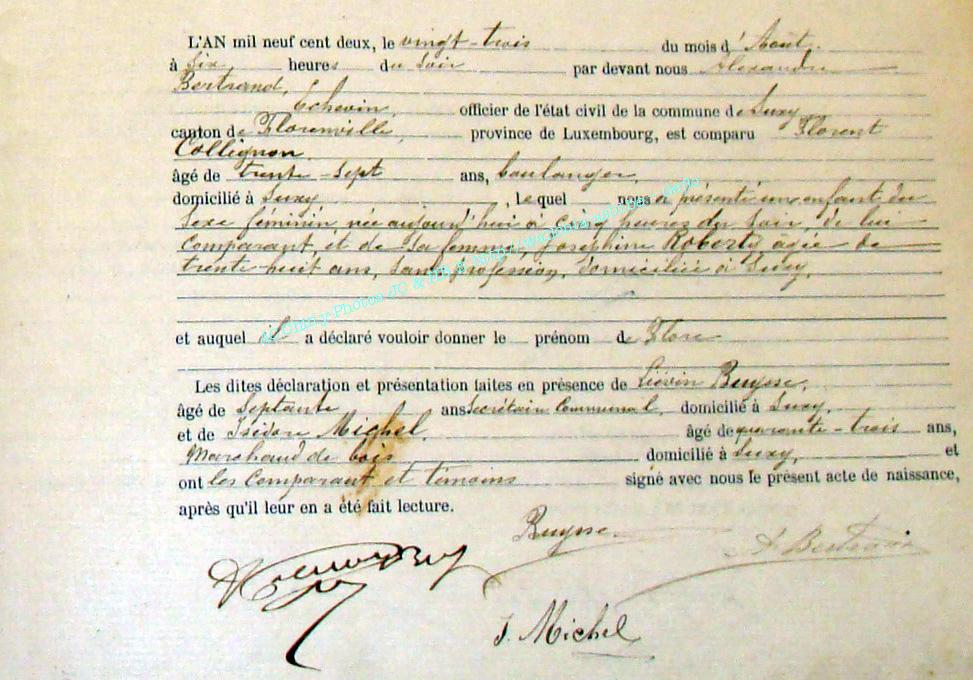 L'AN mil neuf cent deux, le vingt-trois du mois d'Août.
à Six heures du soir par devant nous Alexandre
Bertrand,
Echevin, officier de l'état civil de la commune de Suxy
canton de Florenville, province de Luxembourg, est comparu Florent
Collignon
âgé de trente-sept ans, boulanger,
domicilié à Suxy, lequel nous a présenté un enfant du
sexe féminin, née aujourd'hui à cinq heures du soir, de lui
Comparant, et de sa femme, Joséphine Roberty agée de
trente-huit ans, sans profession, domiciliée à Suxy,
et auquel il a déclaré vouloir donner le prénom de Flore
Les dites déclaration et présentation faites en présence de Liévin Buysse,
âgé de Septante ans Secrétaire Communal, domicilié à Suxy,
et de Isidore Michel, âgé de quarante-trois ans,
Marchand de bois domicilié à Suxy, et
ont les Comparant et témoins signé avec nous le présent acte de naissance,
après qu'il leur en a été fait lecture.
Buysse
A. Bertrand
J. Michel